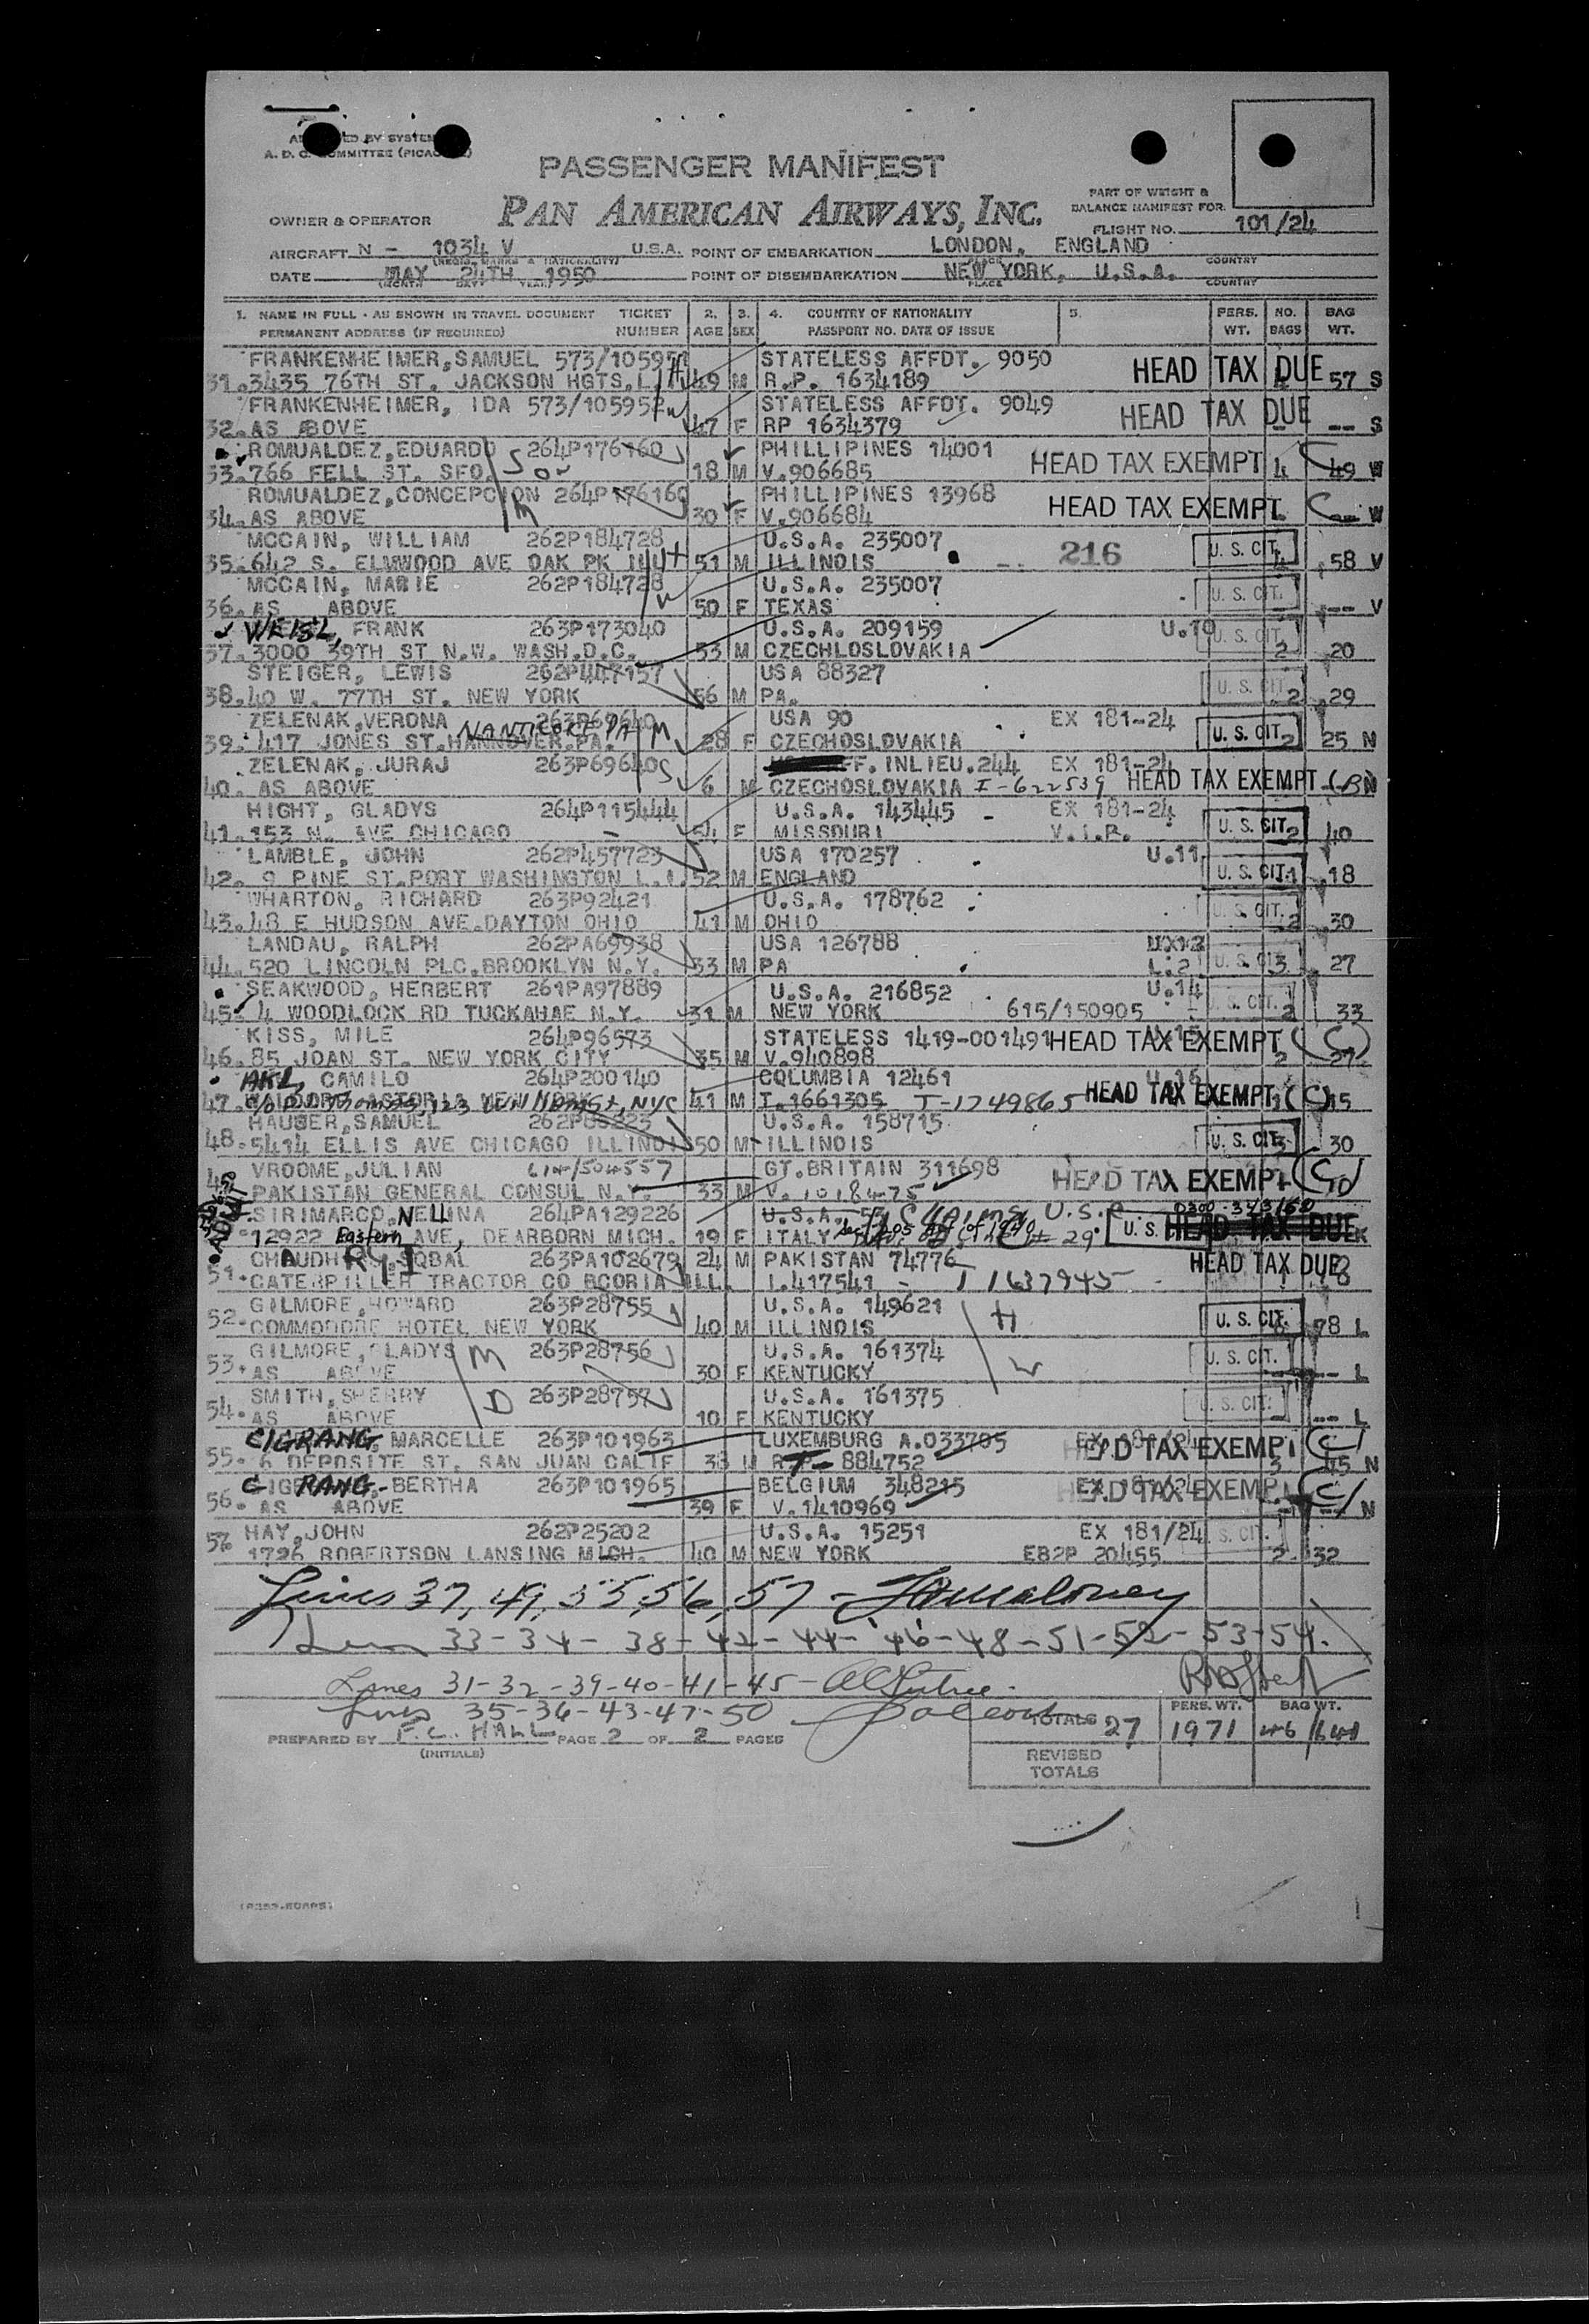 PASSENGER MANIFEST
PAN AMERICAN AIRWAYS, INC.
PART OF WEIGHT &
BALANCE MANIFEST FOR
OWNER & OPERATOR
FLIGHT NO. 101/24
AIRCRAFT N - 1034 V U.S.A. POINT OF EMBARKATION LONDON, ENGLAND
DATE MAY 24TH 1950 POINT OF DISEMBARKATION NEW YORK, U.S.A.
1. NAME IN FULL - AS SHOWN IN TRAVEL DOCUMENT TICKET 2. 3. 4. COUNTRY OF NATIONALITY 5. PERS. NO. BAG
PERMANENT ADDRESS (IF REQUIRED) NUMBER AGE SEX PASSPORT NO. DATE OF ISSUE WT. BAGS WT.
FRANKENHEIMER, SAMUEL 573/105951 STATELESS AFFDT. 9050 HEAD TAX DUE
31. 3435 76TH ST. JACKSON HGTS, L. 49 M R.P. 1634189 57 S
FRANKENHEIMER, IDA 573/105952 STATELESS AFFDT. 9049 HEAD TAX DUE
32. AS ABOVE 47 F RP 1634379 -- S
ROMUALDEZ, EDUARDO 264P176160 PHILLIPINES 14001 HEAD TAX EXEMPT
33. 766 FELL ST. SFO. 18 M V.906685 4 49 W
ROMUALDEZ, CONCEPCION 264P176160 PHILLIPINES 13968 HEAD TAX EXEMPT
34. AS ABOVE 30 F V.906684 -- W
MCCAIN, WILLIAM 262P184728 U.S.A. 235007 216 U. S. CIT.
35. 642 S. ELMWOOD AVE OAK PK ILL 51 M ILLINOIS 4 58 V
MCCAIN, MARIE 262P184728 U.S.A. 235007 U. S. CIT.
36. AS ABOVE 50 F TEXAS --- V
WEISL, FRANK 263P173040 U.S.A. 209159 U.10 U. S. CIT.
37. 3000 39TH ST N.W. WASH.D.C. 53 M CZECHLOSLOVAKIA 2 20
STEIGER, LEWIS 262P447157 USA 88327 U. S. CIT.
38. 40 W. 77TH ST. NEW YORK 56 M PA. 2 29
ZELENAK, VERONA 263P69640 USA 90 EX 181-24 U. S. CIT.
NANTICOKE PA
39. 417 JONES ST. HANNOVER.PA. M 28 F CZECHOSLOVAKIA 2 25 N
ZELENAK, JURAJ 263P69640 S FF. INLIEU.244 EX 181-24
40. AS ABOVE 6 M CZECHOSLOVAKIA I-622539 HEAD TAX EXEMPT N
HIGHT, GLADYS 264P115444 U.S.A. 143445 EX 181-24 U. S. CIT.
41. 153 N. AVE CHICAGO 54 F MISSOURI V.I.P. 2 40
LAMBLE, JOHN 262P457723 USA 170257 U.11 U. S. CIT.
42. 9 PINE ST. PORT WASHINGTON L.I. 52 M ENGLAND 1 18
WHARTON, RICHARD 263P92421 U.S.A. 178762 U. S. CIT.
43. 48 E HUDSON AVE. DAYTON OHIO 41 M OHIO 2 30
LANDAU, RALPH 262PA69938 USA 126788
44. 520 LINCOLN PLC. BROOKLYN N.Y. 33 M PA L.2 U. S. CIT. 3 27
SEAKWOOD, HERBERT 261PA97889 U.S.A. 216852 U.14 U. S. CIT.
45. 4 WOODLOCK RD TUCKAHAE N.Y. 31 M NEW YORK 615/150905 2 33
KISS, MILE 264P96573 STATELESS 1419-001491 HEAD TAX EXEMPT (C)
46. 85 JOAN ST. NEW YORK CITY 35 M V.940898 2 27
AKL, CAMILO 264P200140 COLUMBIA 12461 U.16
47. NYC 41 M T.1661305 T-1749865 HEAD TAX EXEMPT (C) 15
HAUSER, SAMUEL U.S.A. 158715
48. 5414 ELLIS AVE CHICAGO ILLINOI 50 M ILLINOIS U. S. CIT. 3 30
VROOME, JULIAN 614/504557 GT. BRITAIN 311698 HEAD TAX EXEMPT
PAKISTAN GENERAL CONSUL N.Y. 33 M
SIRIMARCO, NELLINA 264PA129226 U.S.A.
12922 Eastern AVE, DEARBORN MICH. 19 F ITALY U. S. HEAD TAX DUE
CHAUDHRY, IQBAL 263PA102679 24 M PAKISTAN 74776 HEAD TAX DUE
51. CATERPILLER TRACTOR CO ILL. I.417541 - T 1637945
GILMORE, HOWARD 263P28755 U.S.A. 149621 H
52. COMMODORE HOTEL NEW YORK 40 M ILLINOIS U. S. CIT. 78 L
GILMORE, GLADYS M 263P28756 U.S.A. 161374 W U. S. CIT.
53. AS ABOVE 30 F KENTUCKY --- L
SMITH, SHERRY D 263P28757 U.S.A. 161375 U. S. CIT.
54. AS ABOVE 10 F KENTUCKY --- L
CIGRANG, MARCELLE 263P101963 LUXEMBURG A.033705 HEAD TAX EXEMPT
55. 6 DEPOSITE ST. SAN JUAN CALIF 38 884752 3 45 N
CIGRANG, BERTHA 263P101965 BELGIUM 348215 HEAD TAX EXEMPT
56. AS ABOVE 39 F V.1410969 N
HAY, JOHN 262P25202 U.S.A. 15251 EX 181/24 S. CIT.
1726 ROBERTSON LANSING MICH. 40 M NEW YORK EB2P 20455 2 32
Lines 37, 49, 55, 56, 57 -
33-34-38-42-44-46-48-51-52-53-54.
Lines 31-32-39-40-41-45 -
35-36-43-47-50
TOTALS 27 PERS. WT. 1971 BAG WT.
PREPARED BY F.C. HALL PAGE 2 OF 2 PAGES
(INITIALS)
REVISED
TOTALS